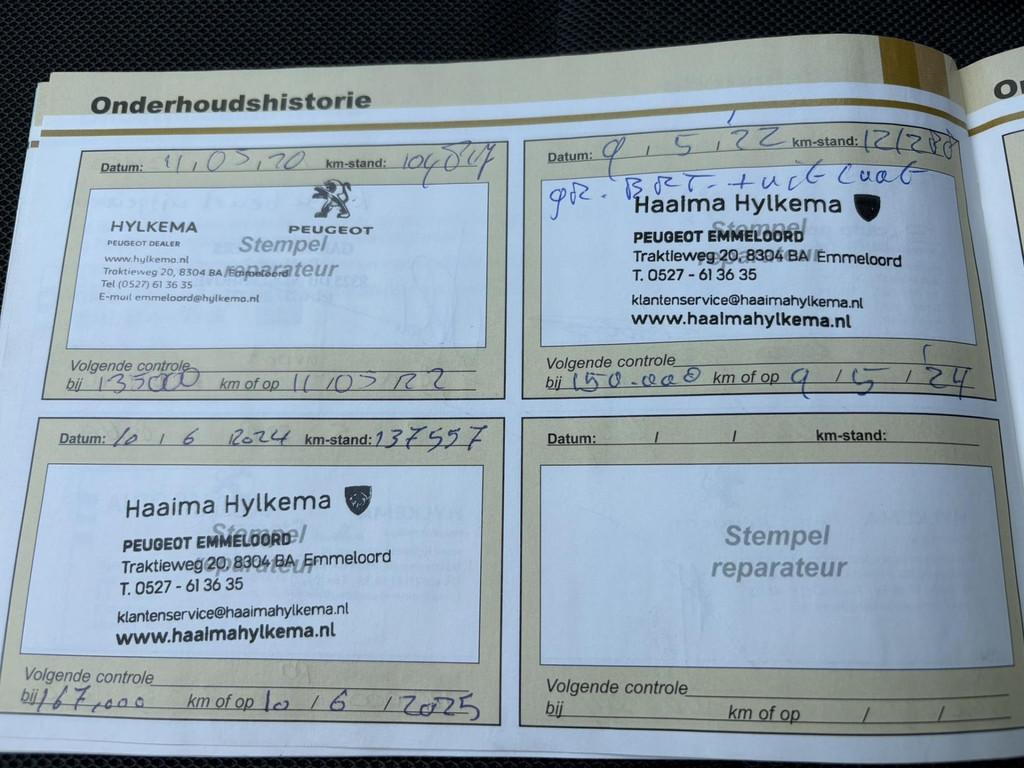 Onderhoudshistorie
Datum: 11,05,20 km-stand: 104847
HYLKEMA
PEUGEOT DEALER
PEUGEOT
Stempel
reparateur
www.hylkema.nl
Traktieweg 20, 8304 BA Emmeloord
Tel (0527) 61 36 35
E-mail emmeloord@hylkema.nl
Volgende controle
bij 135000 km of op 11/05/22
Datum: 9, 5, '22 km-stand: 121288
gr. BRT. +
Haaima Hylkema
Stempel
reparateur
PEUGEOT EMMELOORD
Traktieweg 20, 8304 BA Emmeloord
T. 0527 - 61 36 35
klantenservice@haaimahylkema.nl
www.haaimahylkema.nl
Volgende controle
bij 150.000 km of op 9 / 5 / '24
Datum: 10 / 6 /2024 km-stand: 137557
Haaima Hylkema
Stempel
reparateur
PEUGEOT EMMELOORD
Traktieweg 20, 8304 BA Emmeloord
T. 0527 - 61 36 35
klantenservice@haaimahylkema.nl
www.haaimahylkema.nl
Volgende controle
bij 167,000 km of op 10 / 6 / 2025
Datum: / / km-stand:
Stempel
reparateur
Volgende controle
bij km of op / /